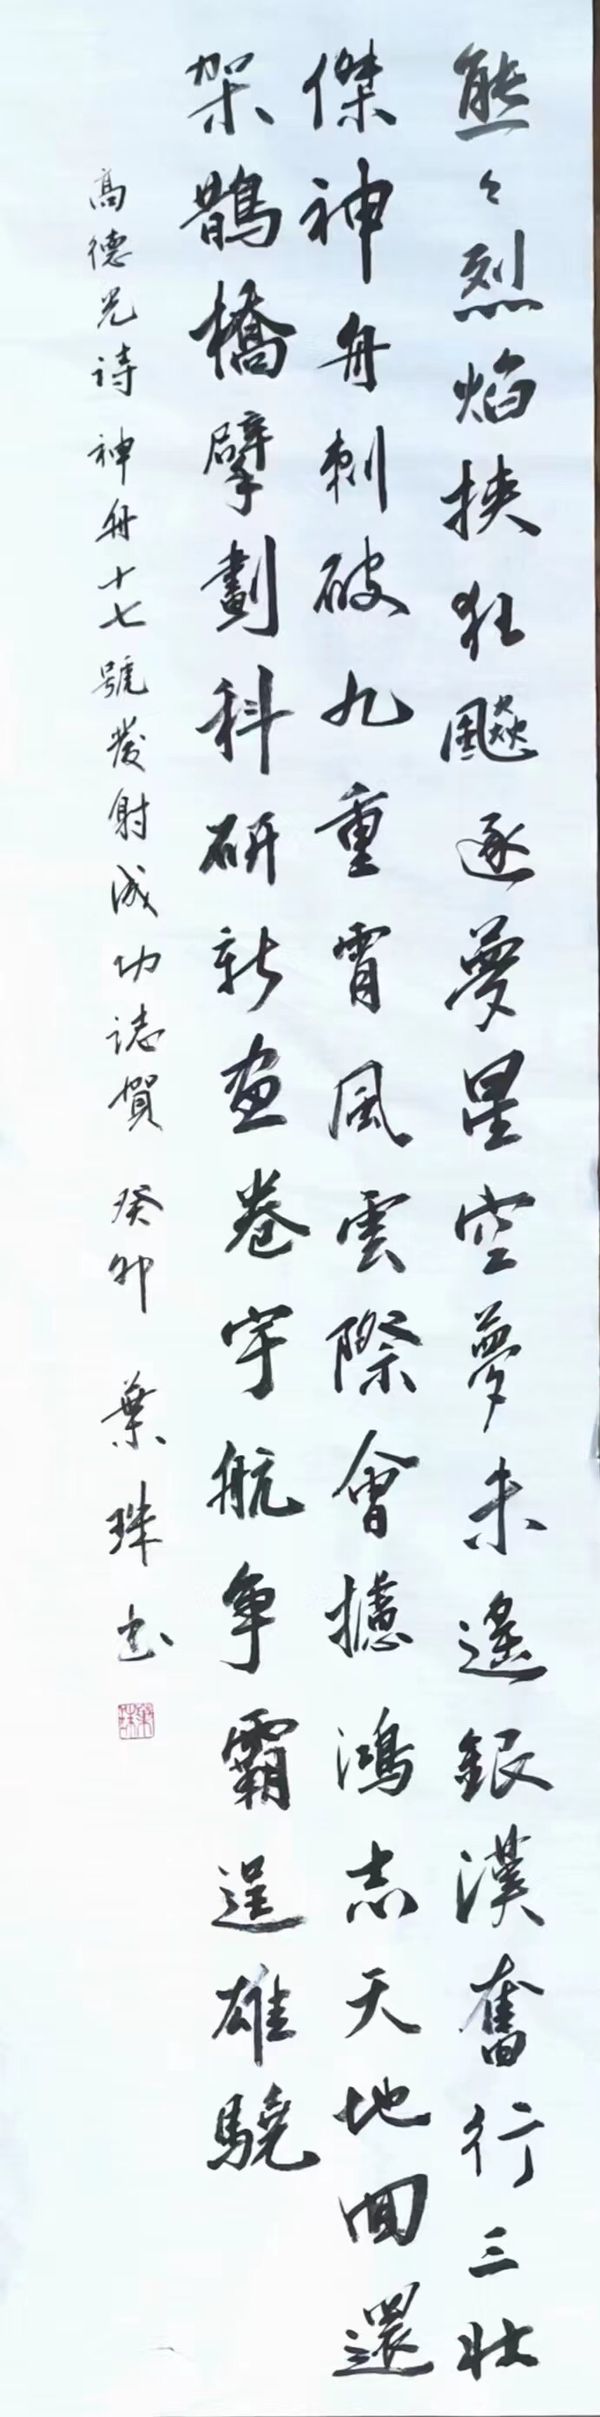 熊々烈焰挾狂飈逐夢星空夢未遙銀漢奮行三壯
傑神舟刺破九重霄風雲際會攄鴻志天地回還
架鵲橋擘劃科研新画卷宇航争霸逞雄驍
高德光诗神舟十七號發射成功誌賀 癸卯 葉珠书
葉珠